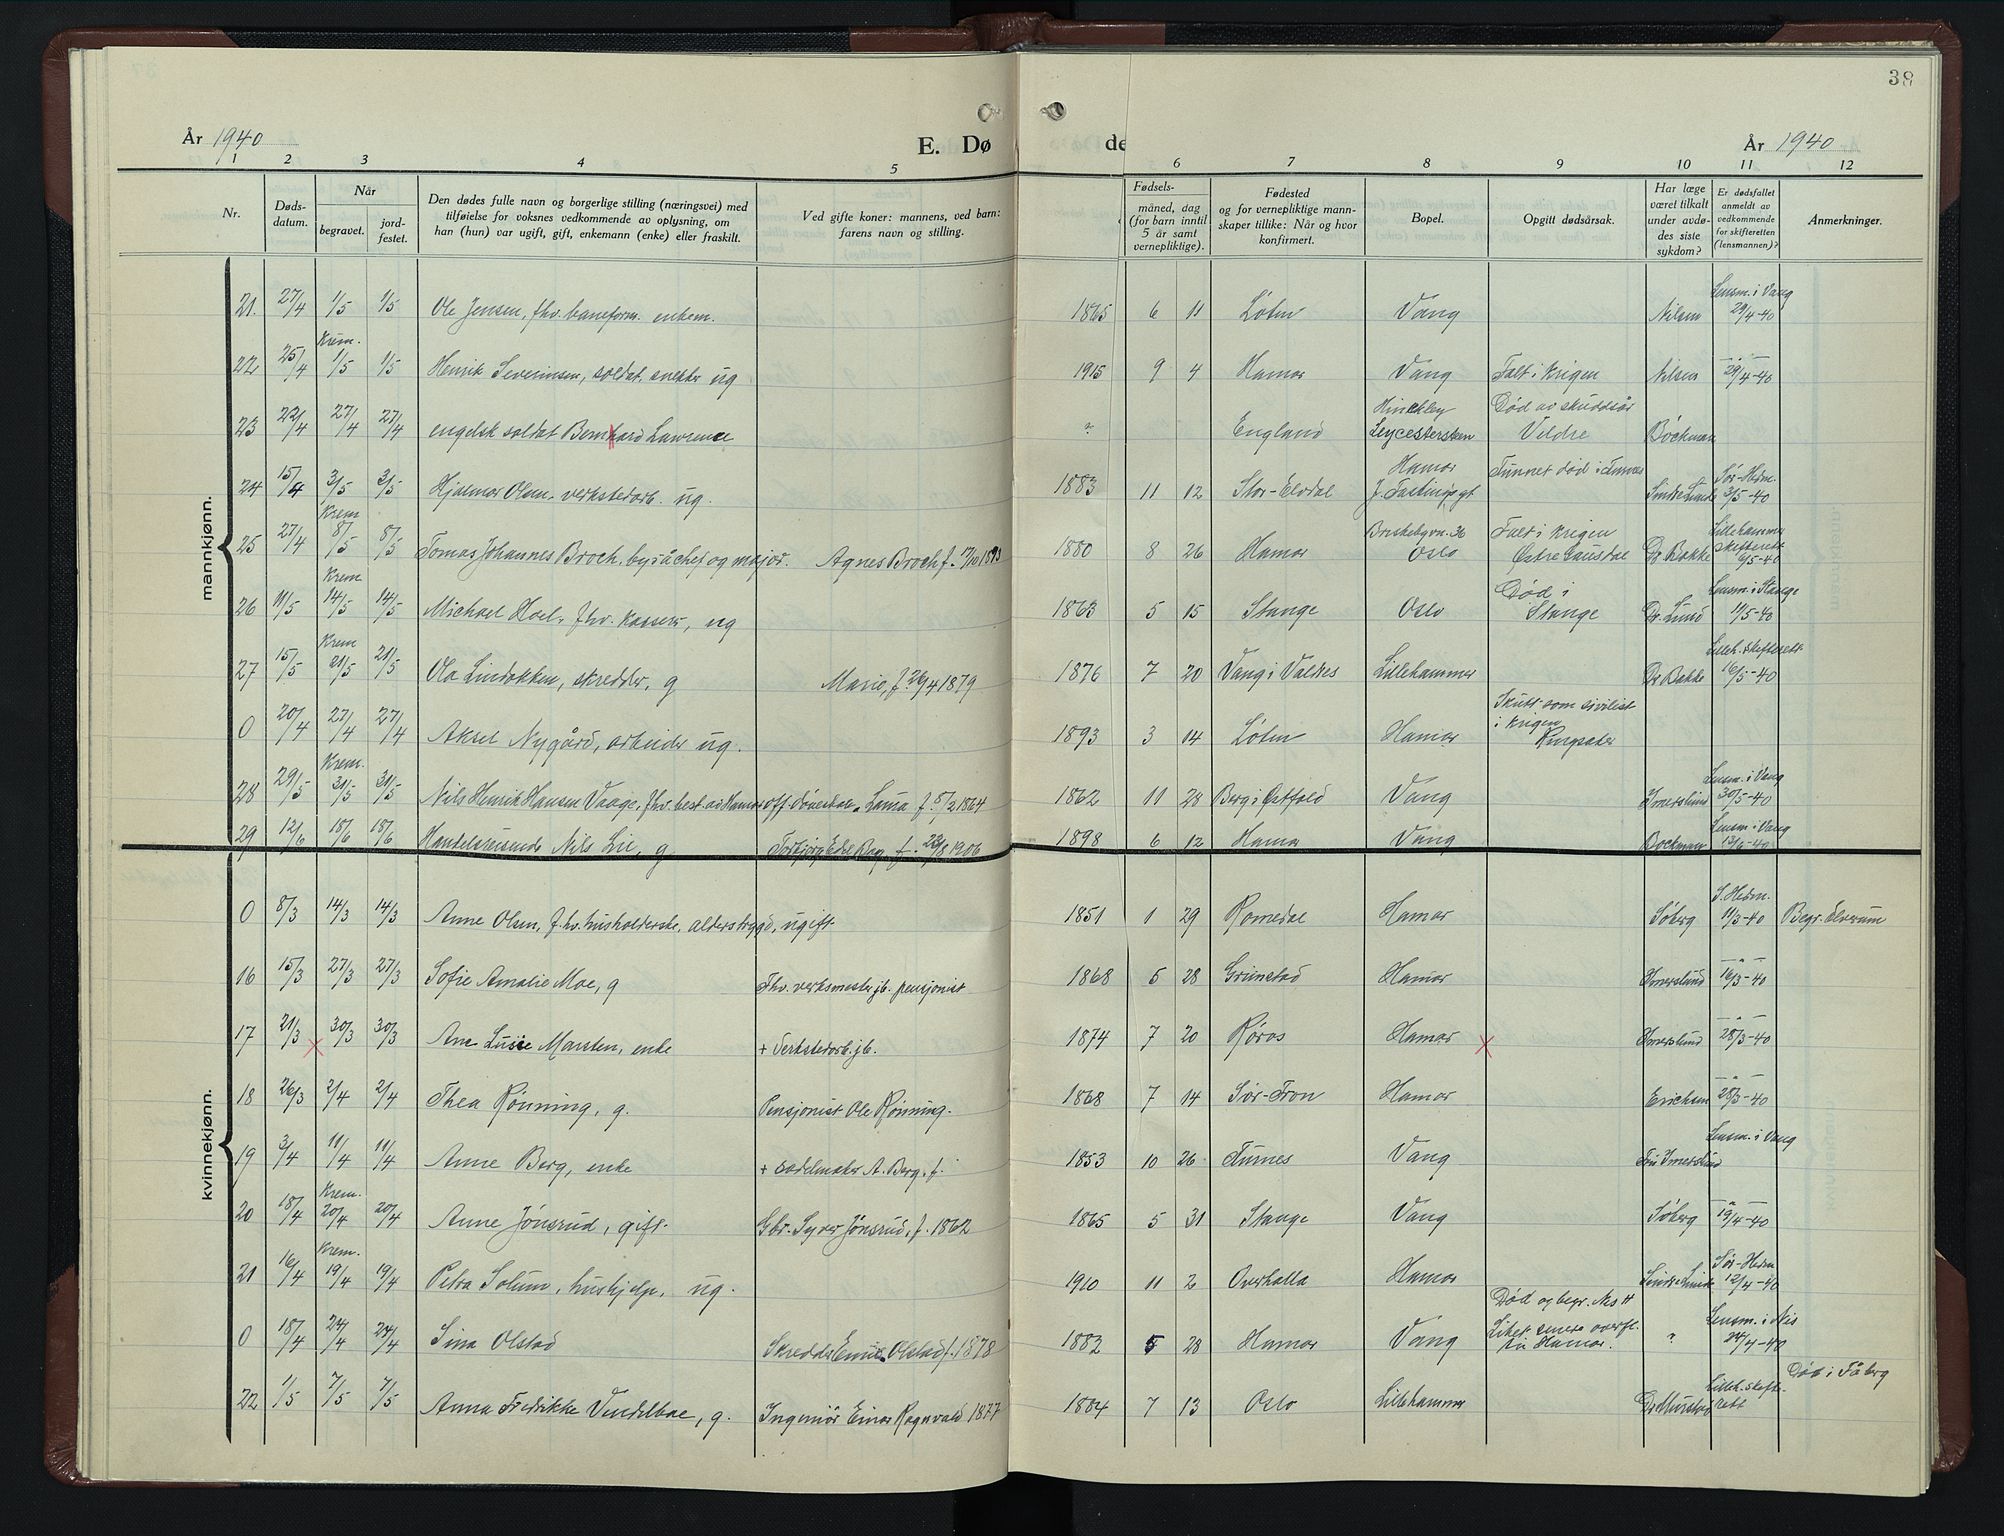 38
År 1940
E. Dø
de
År 1940
1 2 3 4 5 6 7 8 9 10 11 12
Nr.
Døds-
datum.
Når
begravet.
jord-
festet.
Den dødes fulle navn og borgerlige stilling (næringsvei) med
tilføielse for voksnes vedkommende av oplysning, om
han (hun) var ugift, gift, enkemann (enke) eller fraskilt.
Ved gifte koner: mannens, ved barn:
farens navn og stilling.
Fødsels-
måned, dag
(for barn inntil
5 år samt
vernepliktige).
Fødested
og for vernepliktige mann-
skaper tillike: Når og hvor
konfirmert.
Bopel.
Opgitt dødsårsak.
Har læge
været tilkalt
under avdø-
des siste
sykdom?
Er dødsfallet
anmeldt av
vedkommende
for skifteretten
(lensmannen)?
Anmerkninger.
mannkjønn.
21. 27/4 1/5 1/5 Ole Jensen, fhv. baneform. enkem. 1865 6 11 Løten Vang Nilsen Lensm. i Vang 29/4-40
22 25/4 Krem. 1/5 1/5 Henrik Severinsen, soldat, snekker ug 1915 9 4 Hamar Vang Falt i krigen Nilsen — " — 29/4-40
23 22/4 27/4 27/4 engelsk soldat Bernhard Lawrence England Hinckley Leycestersteen Død av skuddsår Veldre Bøckman
24 15/4 3/5 3/5 Hjalmar Olsen, verkstedarb. ug. 1883 11 12 Stor-Elvdal Hamar J. Fastingsgt Funnet død i Furnes Sindre Lunde Sør-Hedm. 3/5-40
25 27/4 Krem 8/5 8/5 Tomas Johannes Broch, byråchef og major. Agnes Broch f. 17/10 1893 1880 8 26 Hamar Briskebyvn. 36 Oslo Falt i krigen Østre Gausdal Dr. Bakke Lillehammer Skifterett 6/5-40
26 11/5 Krem 14/5 14/5 Michael Hoel, fhv. kasser, ug 1863 5 15 Stange Oslo Død i Stange Dr. Lund Lensm. i Stange 11/5-40
27 15/5 Krem 21/5 21/5 Ola Lindokken, skredder, g Marie, f. 26/4 1879 1876 7 20 Vang i Valdres Lillehammer Dr. Bakke Lilleh. skifterett 16/5-40
0 20/4 27/4 27/4 Aksel Nygård, arbeider ug. 1893 3 14 Løten Hamar Skutt som sivilist i krigen Ringsaker
28 29/5 Krem. 31/5 31/5 Nils Henrik Hansen Vaage, fhv. best. av Hamar off. døveskole. Laura f. 5/2 1864 1862 11 28 Berg i Østfold Vang Imerslund Lensm. i Vang 30/5-40
29 12/6 18/6 18/6 Handelsreisende Nils Lie, g Torbjørg f. 23/8 1906 1898 6 12 Hamar Vang Bockman Lensm. i Vang 13/6-40
kvinnekjønn.
0 8/3 14/3 14/3 Anne Olsen, f.hv. husholderske, alderstrygd, ugift 1851 1 29 Romedal Hamar Søberg S. Hedm. 11/3-40 Begr. Elverum
16 15/3 27/3 27/3 Sofie Amalie Moe, g Fhv. verksmester jb. pensjonist 1868 5 28 Grimstad Hamar Imerslund — " — 16/3-40
17 21/3 × 30/3 30/3 Ane Lusie Marsten, enke + Verkstedarb. jb. 1874 7 20 Røros Hamar × Imerslund — " — 28/3-40
18 26/3 2/4 2/4 Thea Rønning, g. Pensjonist Ole Rønning. 1868 7 14 Sør-Fron Hamar Erichsen — " — 28/3-40
19 3/4 11/4 11/4 Anne Berg, enke + sadelmaker A. Berg, f. 1853 10 26 Furnes Vang Fru Imerslund Lensm. i Vang
20 18/4 Krem. 20/4 20/4 Anne Jønsrud, gift. Gbr. Syver Jønsrud, f. 1862 1865 5 31 Stange Vang Søberg — " — 19/4-40
21 16/4 Krem. 19/4 19/4 Petra Solum, hushjelp, ug. 1910 11 2 Overhalla Hamar Sindre Lunde Sør-Hedm 12/4-40
0 18/4 24/4 24/4 Sina Olstad Skredd. Emil Olstad f. 1878 1882 5 28 Hamar Vang Død og begr. Nes H Liket senere overf. til Hamar. " Lensm. i Nes 24/4-40
22 1/5 7/5 7/5 Anna Fredrikke Vendelboe, g. Ingeniør Einar Ragnvald 1877 1884 7 13 Oslo Lillehammer Dr. Murstad Lilleh. skifte- rett Død i Fåberg